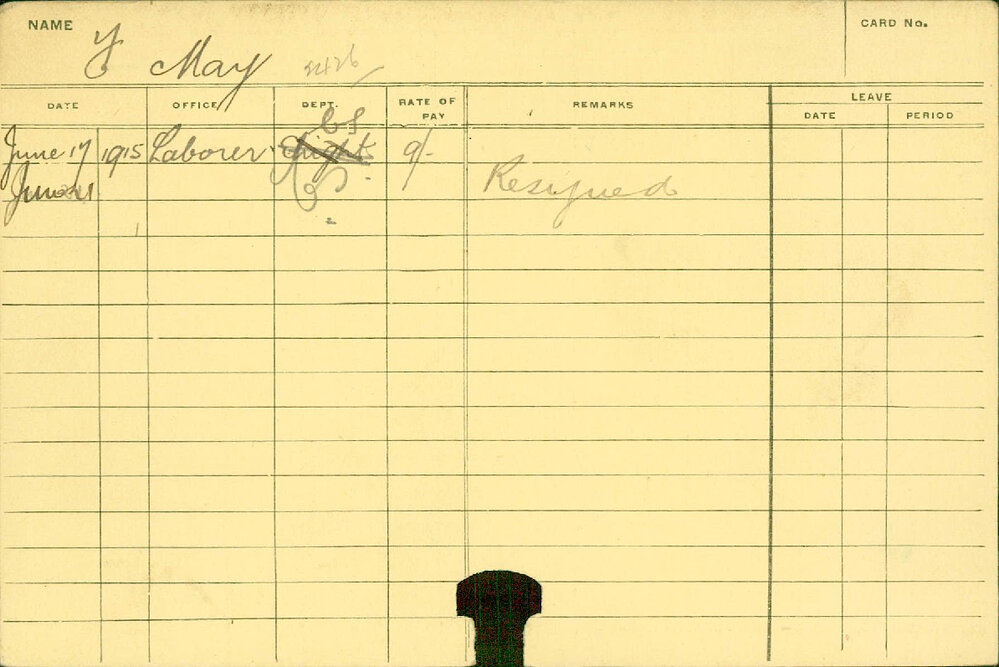 NAME
CARD No.
May 2426
DATE OFFICE DEPT. RATE OF PAY REMARKS LEAVE
DATE PERIOD
June 17 1915 Laborer 9/-
June 21 Resigned